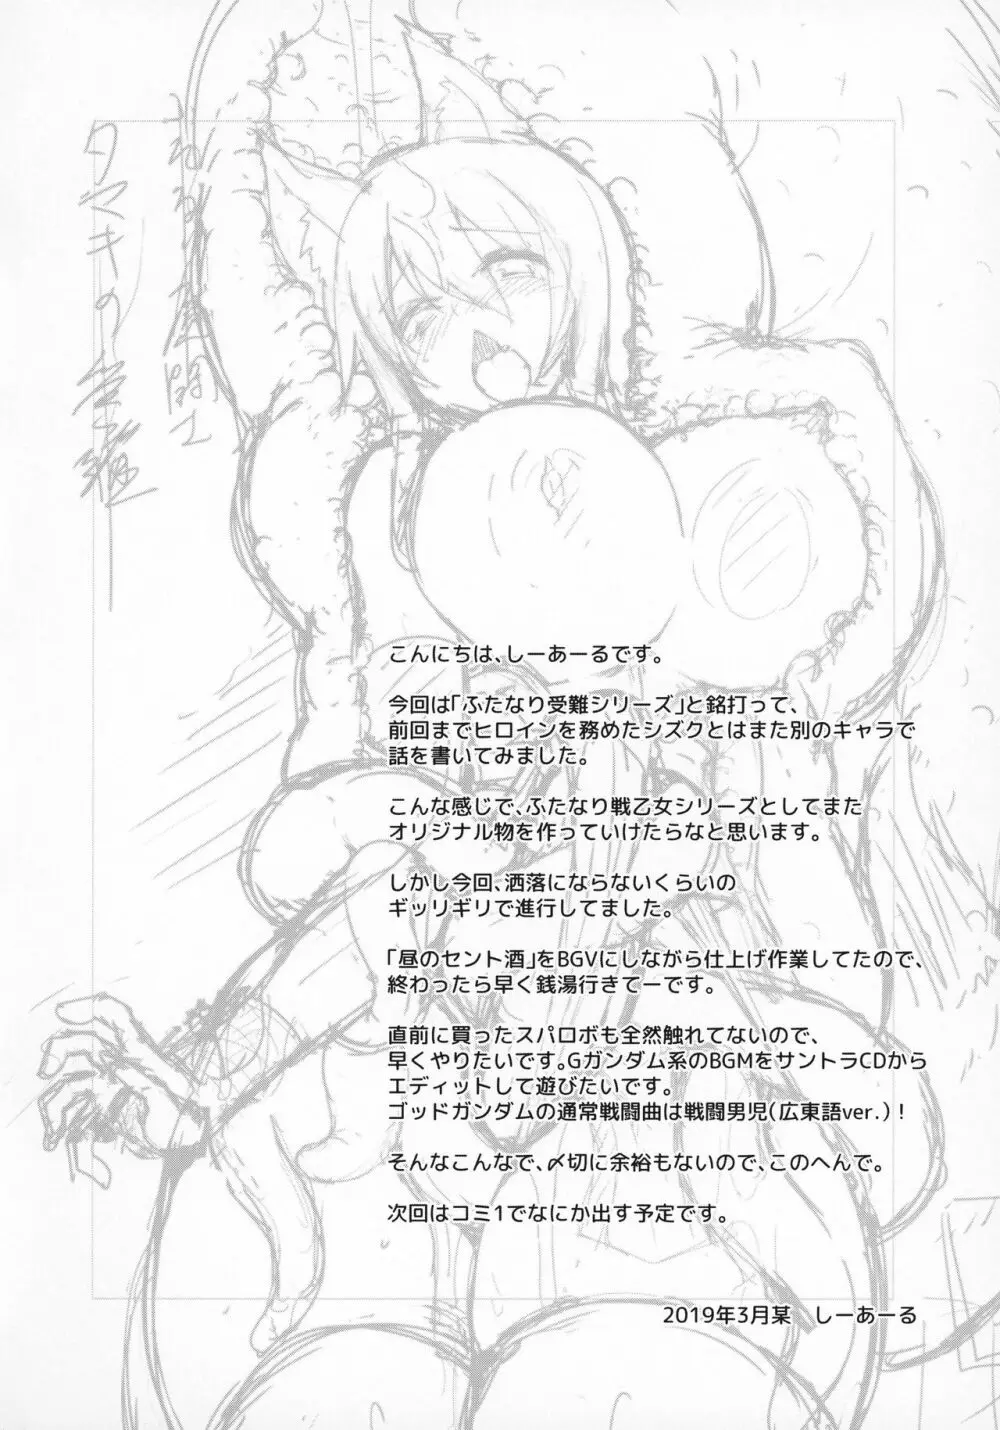 こんにちは、しーあーるです。
今回は「ふたなり受難シリーズ」と銘打って、
前回までヒロインを務めたシズクとはまた別のキャラで
話を書いてみました。
こんな感じで、ふたなり戦乙女シリーズとしてまた
オリジナル物を作っていけたらなと思います。
しかし今回、洒落にならないくらいの
ギッリギリで進行してました。
「昼のセント酒」をBGVにしながら仕上げ作業してたので、
終わったら早く銭湯行きてーです。
直前に買ったスパロボも全然触れてないので、
早くやりたいです。Gガンダム系のBGMをサントラCDから
エディットして遊びたいです。
ゴッドガンダムの通常戦闘曲は戦闘男児(広東語ver.)!
そんなこんなで、〆切に余裕もないので、このへんで。
次回はコミ1でなにか出す予定です。
2019年3月某　しーあーる